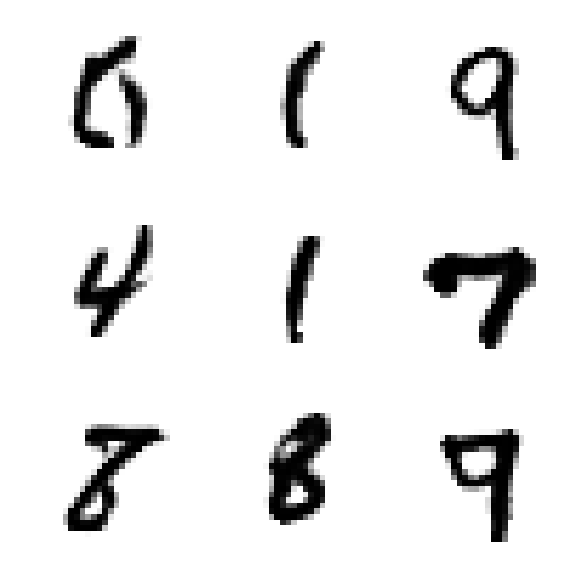 0 1 9
4 1 7
8 8 9